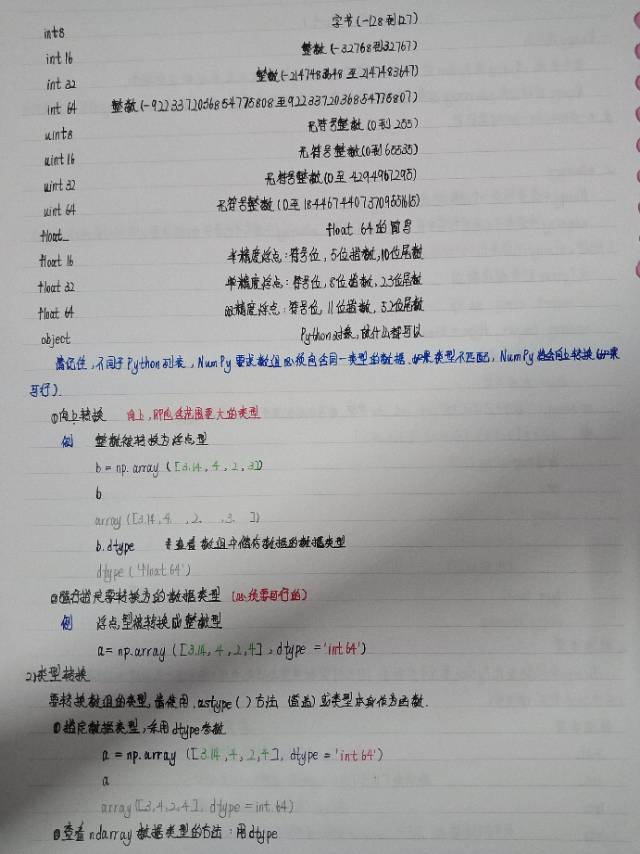 int8 字节(-128到127)
int 16 整数(-32768到32767)
int 32 整数(-2147483648 至 2147483647)
int 64 整数(-9223372036854775808至9223372036854775807)
uint8 无符号整数(0到255)
uint 16 无符号整数(0到65535)
uint 32 无符号整数(0至 4294967295)
uint 64 无符号整数(0至18446744073709551615)
float_ float 64的简写
float 16 半精度浮点:符号位,5位指数,10位尾数
float 32 单精度浮点:符号位,8位指数,23位尾数
float 64 双精度浮点:符号位,11位指数,52位尾数
object Python对象,放什么都可以
需记住,不同于Python列表,NumPy要求数组必须包含同一类型的数据.如果类型不匹配,NumPy将会向上转换(如果
可行).
①向上转换 向上,即包含范围更大的类型
例 整数被转换为浮点型
b = np.array ([3.14, 4, 2, 3])
b
array ([3.14, 4. , 2. , 3. ])
b.dtype #查看数组中储存数据的数据类型
dtype ('float 64')
转换为的数据类型 (必须要可行的)
例 浮点型被转换成整数型
a= np.array ([3.14, 4, 2, 4], dtype ='int 64')
2)类型转换
要转换数组的类型,请使用.astype()方法 (首选)或类型本身作为函数.
①指定数据类型,采用dtype参数
a = np.array ([3.14, 4, 2, 4], dtype = 'int 64')
a
array([3, 4, 2, 4], dtype = int 64)
查看ndarray 数据类型的方法:用dtype